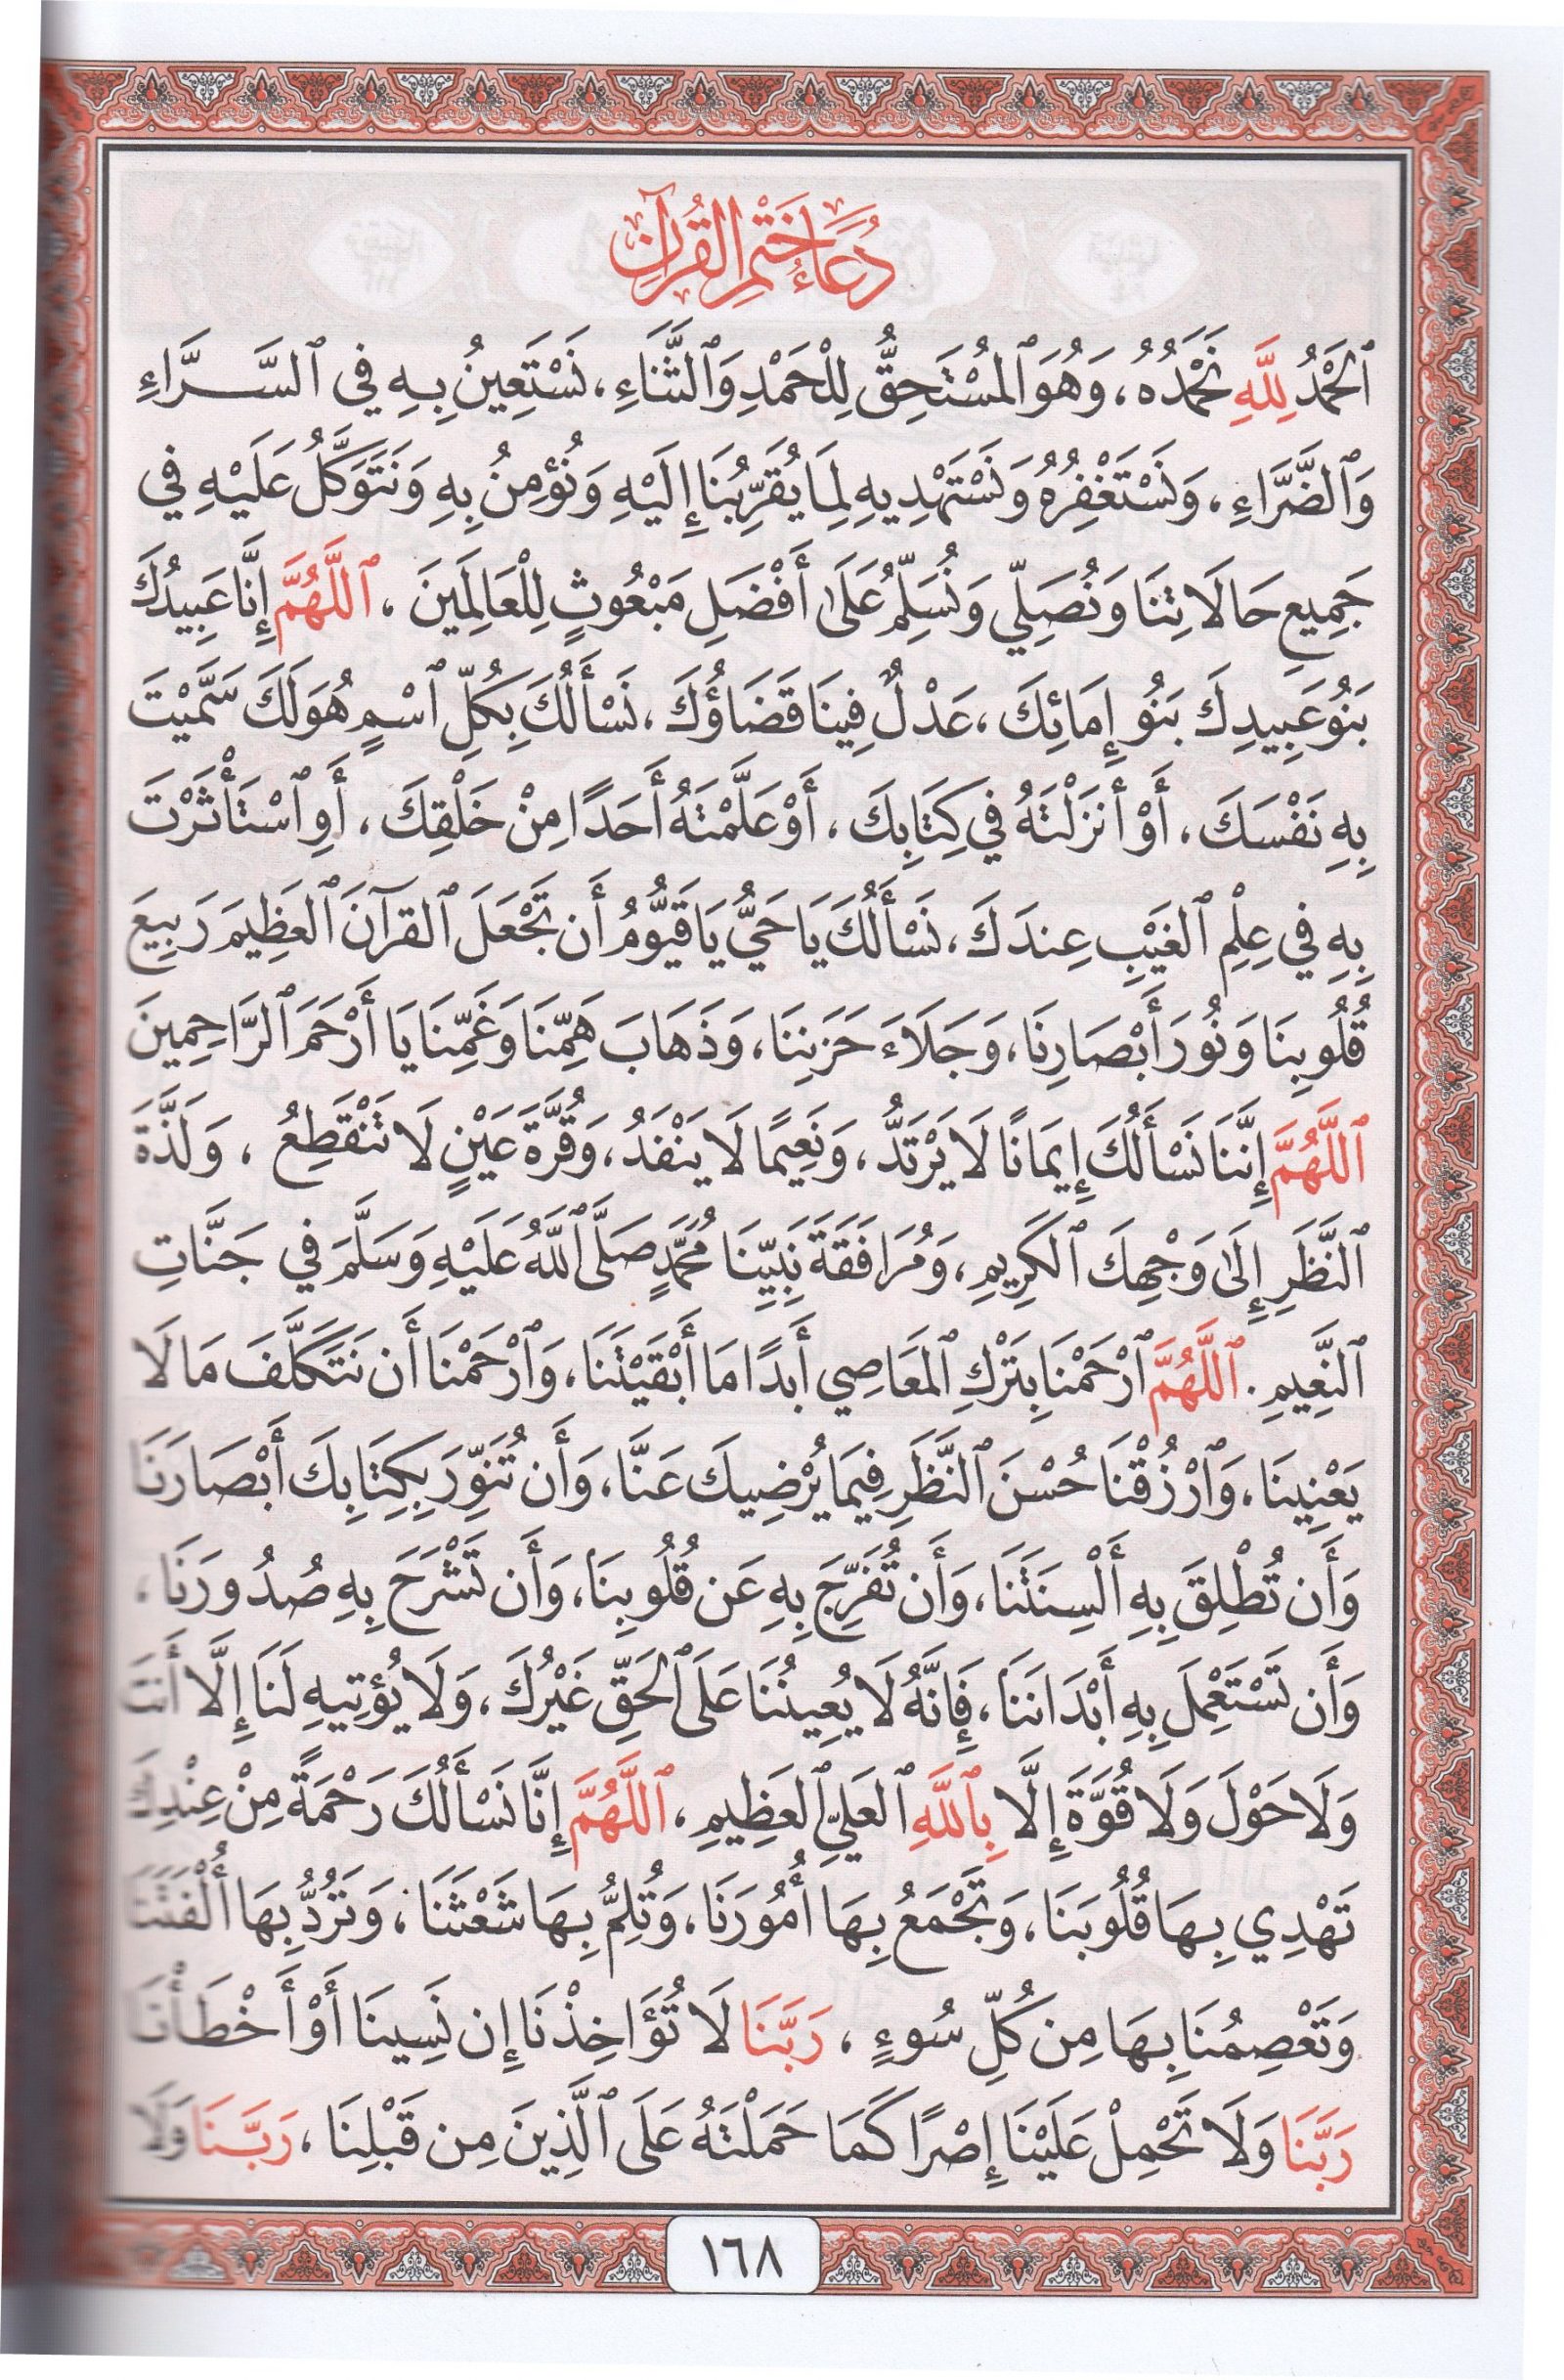 دُعَاءُ خَتْمِ القُرْآنِ
ٱلْحَمْدُ لِلَّهِ نَحْمَدُهُ، وَهُوَ ٱلْمُسْتَحِقُّ لِلْحَمْدِ وَٱلثَّنَاءِ، نَسْتَعِينُ بِهِ فِي ٱلسَّرَّاءِ
وَٱلضَّرَّاءِ، وَنَسْتَغْفِرُهُ وَنَسْتَهْدِيهِ لِمَا يُقَرِّبُنَا إِلَيْهِ وَنُؤْمِنُ بِهِ وَنَتَوَكَّلُ عَلَيْهِ فِي
جَمِيعِ حَالَاتِنَا وَنُصَلِّي وَنُسَلِّمُ عَلَى أَفْضَلِ مَبْعُوثٍ لِلْعَالَمِينَ، ٱللَّهُمَّ إِنَّا عَبِيدُكَ
بَنُو عَبِيدِكَ بَنُو إِمَائِكَ، عَدْلٌ فِينَا قَضَاؤُكَ، نَسْأَلُكَ بِكُلِّ ٱسْمٍ هُوَ لَكَ سَمَّيْتَ
بِهِ نَفْسَكَ، أَوْ أَنزَلْتَهُ فِي كِتَابِكَ، أَوْ عَلَّمْتَهُ أَحَدًا مِنْ خَلْقِكَ، أَوِ ٱسْتَأْثَرْتَ
بِهِ فِي عِلْمِ ٱلغَيْبِ عِندَكَ، نَسْأَلُكَ يَا حَيُّ يَا قَيُّومُ أَن تَجْعَلَ ٱلقرآنَ ٱلعَظِيمَ رَبِيعَ
قُلُوبِنَا وَنُورَ أَبْصَارِنَا، وَجَلَاءَ حَزَنِنَا، وَذَهَابَ هَمِّنَا وَغَمِّنَا يَا أَرْحَمَ ٱلرَّاحِمِينَ
ٱللَّهُمَّ إِنَّنَا نَسْأَلُكَ إِيمَانًا لَا يَرْتَدُّ، وَنَعِيمًا لَا يَنْفَدُ، وَقُرَّةَ عَيْنٍ لَا تَنْقَطِعُ، وَلَذَّةَ
ٱلنَّظَرِ إِلَى وَجْهِكَ ٱلكَرِيمِ، وَمُرَافَقَةَ نَبِيِّنَا مُحَمَّدٍ صَلَّى ٱللَّهُ عَلَيْهِ وَسَلَّمَ فِي جَنَّاتِ
ٱلنَّعِيمِ. ٱللَّهُمَّ ٱرْحَمْنَا بِتَرْكِ ٱلمَعَاصِي أَبَدًا مَا أَبْقَيْتَنَا، وَٱرْحَمْنَا أَن نَتَكَلَّفَ مَا لَا
يَعْنِينَا، وَٱرْزُقْنَا حُسْنَ ٱلنَّظَرِ فِيمَا يُرْضِيكَ عَنَّا، وَأَن تُنَوِّرَ بِكِتَابِكَ أَبْصَارَنَا
وَأَن تُطْلِقَ بِهِ أَلْسِنَتَنَا، وَأَن تُفَرِّجَ بِهِ عَن قُلُوبِنَا، وَأَن تَشْرَحَ بِهِ صُدُورَنَا،
وَأَن تَسْتَعْمِلَ بِهِ أَبْدَانَنَا، فَإِنَّهُ لَا يُعِينُنَا عَلَى ٱلحَقِّ غَيْرُكَ، وَلَا يُؤتِيهِ لَنَا إِلَّا أَنتَ
وَلَا حَوْلَ وَلَا قُوَّةَ إِلَّا بِٱللَّهِ ٱلعَلِيِّ ٱلعَظِيمِ، ٱللَّهُمَّ إِنَّا نَسْأَلُكَ رَحْمَةً مِنْ عِنْدِكَ
تَهْدِي بِهَا قُلُوبَنَا، وَتَجْمَعُ بِهَا أُمُورَنَا، وَتُلِمُّ بِهَا شَعْثَنَا، وَتَرُدُّ بِهَا أُلْفَتَنَا
وَتَعْصِمُنَا بِهَا مِن كُلِّ سُوءٍ، رَبَّنَا لَا تُؤَاخِذْنَا إِن نَسِينَا أَوْ أَخْطَأْنَا
رَبَّنَا وَلَا تَحْمِلْ عَلَيْنَا إِصْرًا كَمَا حَمَلْتَهُ عَلَى ٱلَّذِينَ مِن قَبْلِنَا، رَبَّنَا وَلَا
١٦٨